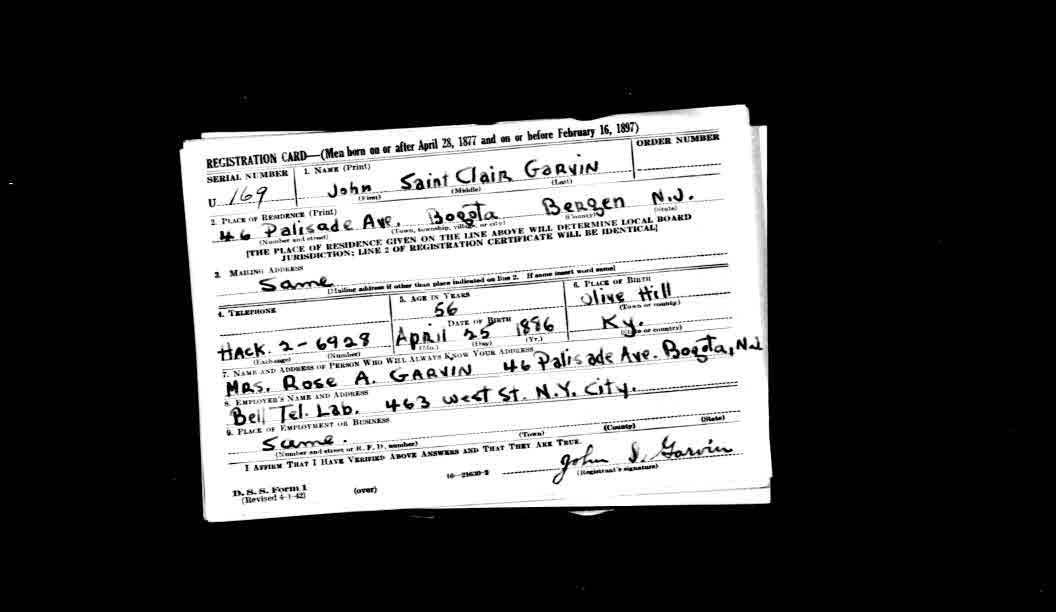 REGISTRATION CARD—(Men born on or after April 28, 1877 and on or before February 16, 1897)
SERIAL NUMBER 1. NAME (Print) ORDER NUMBER
U 169 John Saint Clair GARVIN
(First) (Middle) (Last)
2. PLACE OF RESIDENCE (Print)
46 Palisade Ave. Bogota Bergen N.J.
(Number and street) (Town, township, village, or city) (County) (State)
[THE PLACE OF RESIDENCE GIVEN ON THE LINE ABOVE WILL DETERMINE LOCAL BOARD
JURISDICTION; LINE 2 OF REGISTRATION CERTIFICATE WILL BE IDENTICAL]
3. MAILING ADDRESS
Same
[Mailing address if other than place indicated on line 2. If same insert word same]
4. TELEPHONE 5. AGE IN YEARS 6. PLACE OF BIRTH
56 Olive Hill
(Town or county)
DATE OF BIRTH
HACK. 2-6928 April 25 1886 Ky.
(Exchange) (Number) (Mo.) (Day) (Yr.) (State or country)
7. NAME AND ADDRESS OF PERSON WHO WILL ALWAYS KNOW YOUR ADDRESS
MRS. Rose A. GARVIN 46 Palisade Ave. Bogota, N.J
8. EMPLOYER'S NAME AND ADDRESS
Bell Tel. Lab. 463 West St. N.Y. City.
9. PLACE OF EMPLOYMENT OR BUSINESS
Same.
(Number and street or R. F. D. number) (Town) (County) (State)
I AFFIRM THAT I HAVE VERIFIED ABOVE ANSWERS AND THAT THEY ARE TRUE.
John S. Garvin
D. S. S. Form 1 (over) 16—21630-2 (Registrant's signature)
(Revised 4-1-42)